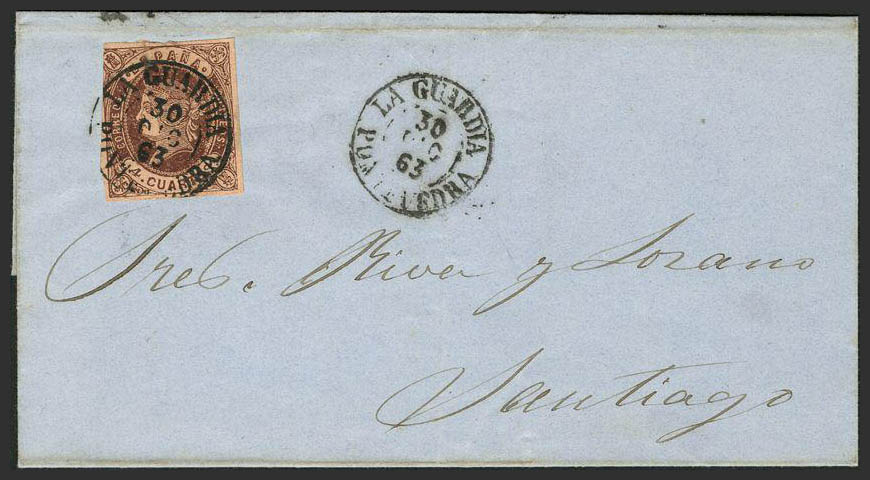 ESPAÑA.
CORREOS
4. CUARTOS
LA GUARDIA
30
DIC
63
PONTEVEDRA
LA GUARDIA
30
DIC
63
PONTEVEDRA
Sres. Riva y Lozano
Santiago